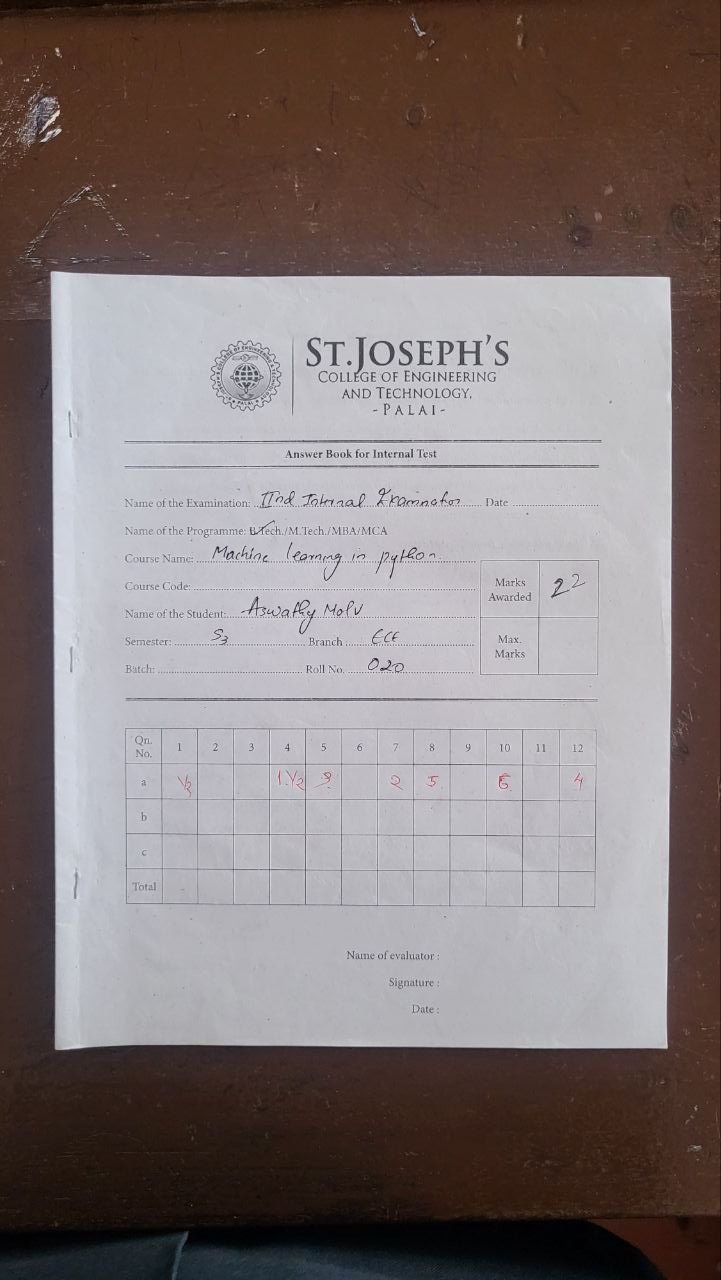 ST.JOSEPH'S
COLLEGE OF ENGINEERING
AND TECHNOLOGY,
-PALAI-
Answer Book for Internal Test
Name of the Examination: IInd Internal Examination Date
Name of the Programme: B.Tech./M.Tech./MBA/MCA
Course Name: Machine learning in python
Course Code:
Marks Awarded 22
Name of the Student: Aswathy Molu
Semester: S3 Branch ECE
Max. Marks
Batch: Roll No. 020
Qn. No. 1 2 3 4 5 6 7 8 9 10 11 12
a 1/2 1 1/2 2 5 4
b
c
Total
Name of evaluator :
Signature :
Date :